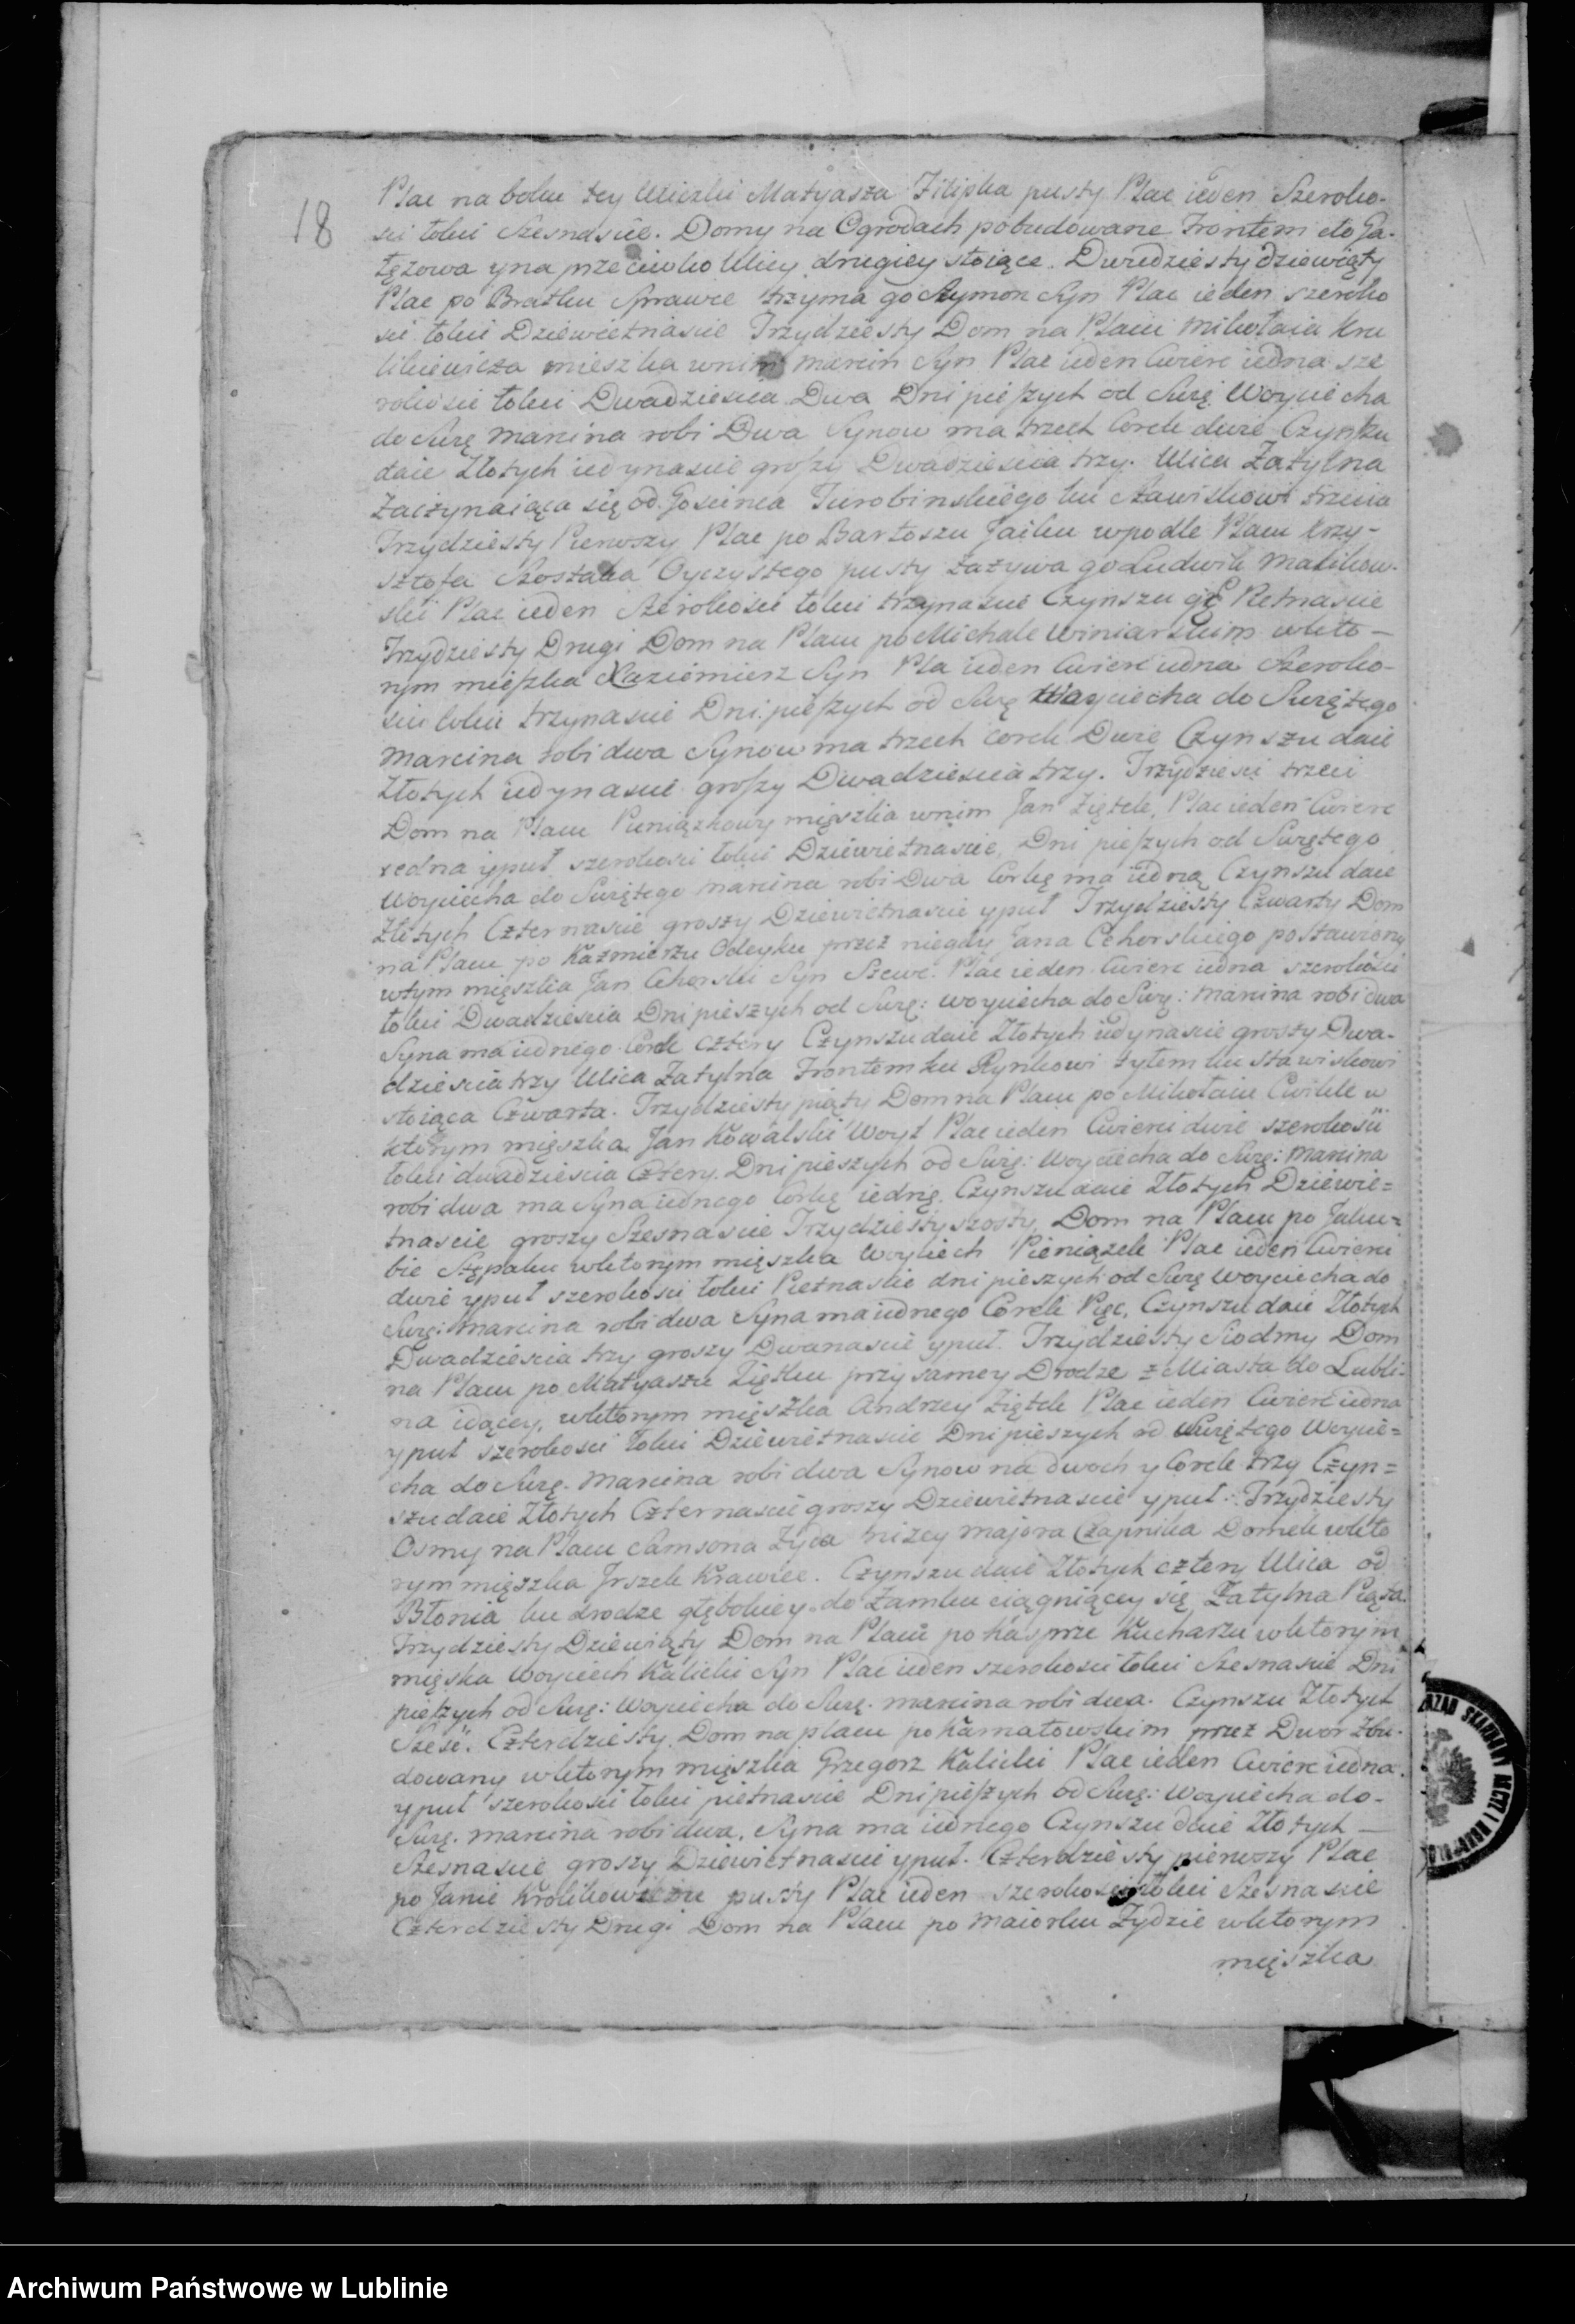 18
Plac na boku tey Uliczki Matyasza Filipka pusty Plac ieden Szeroko-
sci łokci Szesnascie. Domy na Ogrodach pobudowane Frontem do Ga-
tęzowa yna przeciwko Ulicy drugiey stoiące. Dwudziesty dziewiąty
Plac po Bratku Sprawce trzyma go Szymon Syn Plac ieden szeroko
sci łokci Dziewietnascie Trzydziesty Dom na Placu Mikołaia Kru
likiewicza mieszka wnim Marcin Syn Plac ieden Cwierc iedna sze
rokoscie łokci Dwadziescia Dwa Dni pieszych od Swię Woyciecha
do Swię Marcina robi Dwa Synow ma trzech Corek dwie Czynszu
daie Złotych iedynascie groszy Dwadziescia trzy. Ulica Zatylna
Zaczynaiąca się od Goscinca Turobinskiego ku Stawiskowi trzecia
Trzydziesty Pierwszy Plac po Bartoszu Jaśku wpodle Placu Krzy-
sztofa Szostaka Oyczystego pusty zazywa go Ludwik Malikow-
ski Plac ieden Szerokosci łokci trzynascie Czynszu gę Pietnascie
Trzydziesty Drugi Dom na Placu po Michale Winiarskim wkto-
rym mieszka Kaziemierz Syn Pla ieden Cwierc iedna Szeroko-
scie łokci trzynascie Dni pieszych od Swię Woyciecha do Swiętego
Marcina robi dwa Synow ma trzech Corek Dwie Czynszu daie
Złotych iedynascie groszy Dwadziescia trzy. Trzydziesci trzeci
Dom na Placu Pieniązkowy mięszka wnim Jan Ziętek, Plac ieden Cwierc
iedna yput szerokosci łokci Dziewietnascie, Dni pieszych od Swiętego
Woyciecha do Swiętego Marcina robi Dwa Corkę ma iedną Czynszu daie
Złotych Czternascie groszy Dziewietnascie yput Trzydziesty Czwarty Dom
na Placu po Kazmierzu Odeyku przez niegdy Jana Cehorskiego postawiony
wtym mięszka Jan Cehorski Syn Szewc. Plac ieden Cwierc iedna szerokości
łokci Dwadziescia Dni pieszych od Swię: Woyciecha do Swię: Marcina robi dwa
Syna ma iednego Corek cztery Czynszu daie Złotych iedynascie groszy Dwa-
dziescia trzy Ulica Zatylna Frontem ku Rynkowi tyłem ku Stawiskowi
stoiąca Czwarta. Trzydziesty piąty Dom na Placu po Mikołaiu Cwikle w
którym mięszka Jan Kowalski Woyt Plac ieden Cwierci dwie szerokosci
łokci dwadziescia Cztery. Dni pieszych od Swię: Woyciecha do Swię: Marcina
robi dwa ma Syna iednego Corkę iednę. Czynszu daie Złotych Dziewie=
tnascie groszy Szesnascie Trzydziesty szosty, Dom na Placu po Jaku=
bie Stępaku wktorym mięszka Woyciech Pieniązek Plac ieden Cwierci
dwie yput szerokosci łokci Pietnascie dni pieszych od Swię Woyciecha do
Swię: Marcina robi dwa Syna ma iednego Corek Pięc, Czynszu daie Złotych
Dwadziescia trzy groszy Dwanascie yput. Trzydziesty Siodmy Dom
na Placu po Matyaszu Ziętku przy samey Drodze z Miasta do Lubli-
na idącey, wktorym mięszka Andrzey Ziętek Plac ieden Cwierc iedna
yput szerokosci łokci Dziewietnascie Dni pieszych od Swiętego Woycie=
cha do Swię. Marcina robi dwa Synow na dwoch y Corek trzy Czyn=
szu daie Złotych Czternascie groszy Dziewietnascie yput. Trzydziesty
Osmy na Placu Samsona Zyda nizey majora Czapnika Domek wkto
rym mięszka Jrszek Krawiec. Czynszu daie Złotych cztery Ulica od
Błonia ku drodze głębokiey do Zamku ciągniący się Zatylna Piąta
Trzydziesty Dziewiąty Dom na Placu po Kasprze Kucharzu wktorym
mięska Woyciech Kalicki Syn Plac ieden szerokosci łokci Szesnascie Dni
pieszych od Swię: Woyciecha do Swię. Marcina robi dwa. Czynszu Złotych
Sześć. Czterdziesty Dom na placu po Karnatowskim przez Dwor zbu-
dowany wktorym mięszka Grzegorz Kalicki Plac ieden Cwierc iedna
yput szerokosci łokci pietnascie Dni pieszych od Swię: Woyciecha do-
Swię. Marcina robi dwa, Syna ma iednego Czynszu daie Złotych —
Szesnascie groszy Dziewietnascie yput. Czterdziesty pierwszy Plac
po Janie Krolikowiczu pusty Plac ieden szerokosci łokci Szesnascie
Czterdziesty Drugi Dom na Placu po Maiorku Zydzie wktorym
mięszka
Archiwum Państwowe w Lublinie